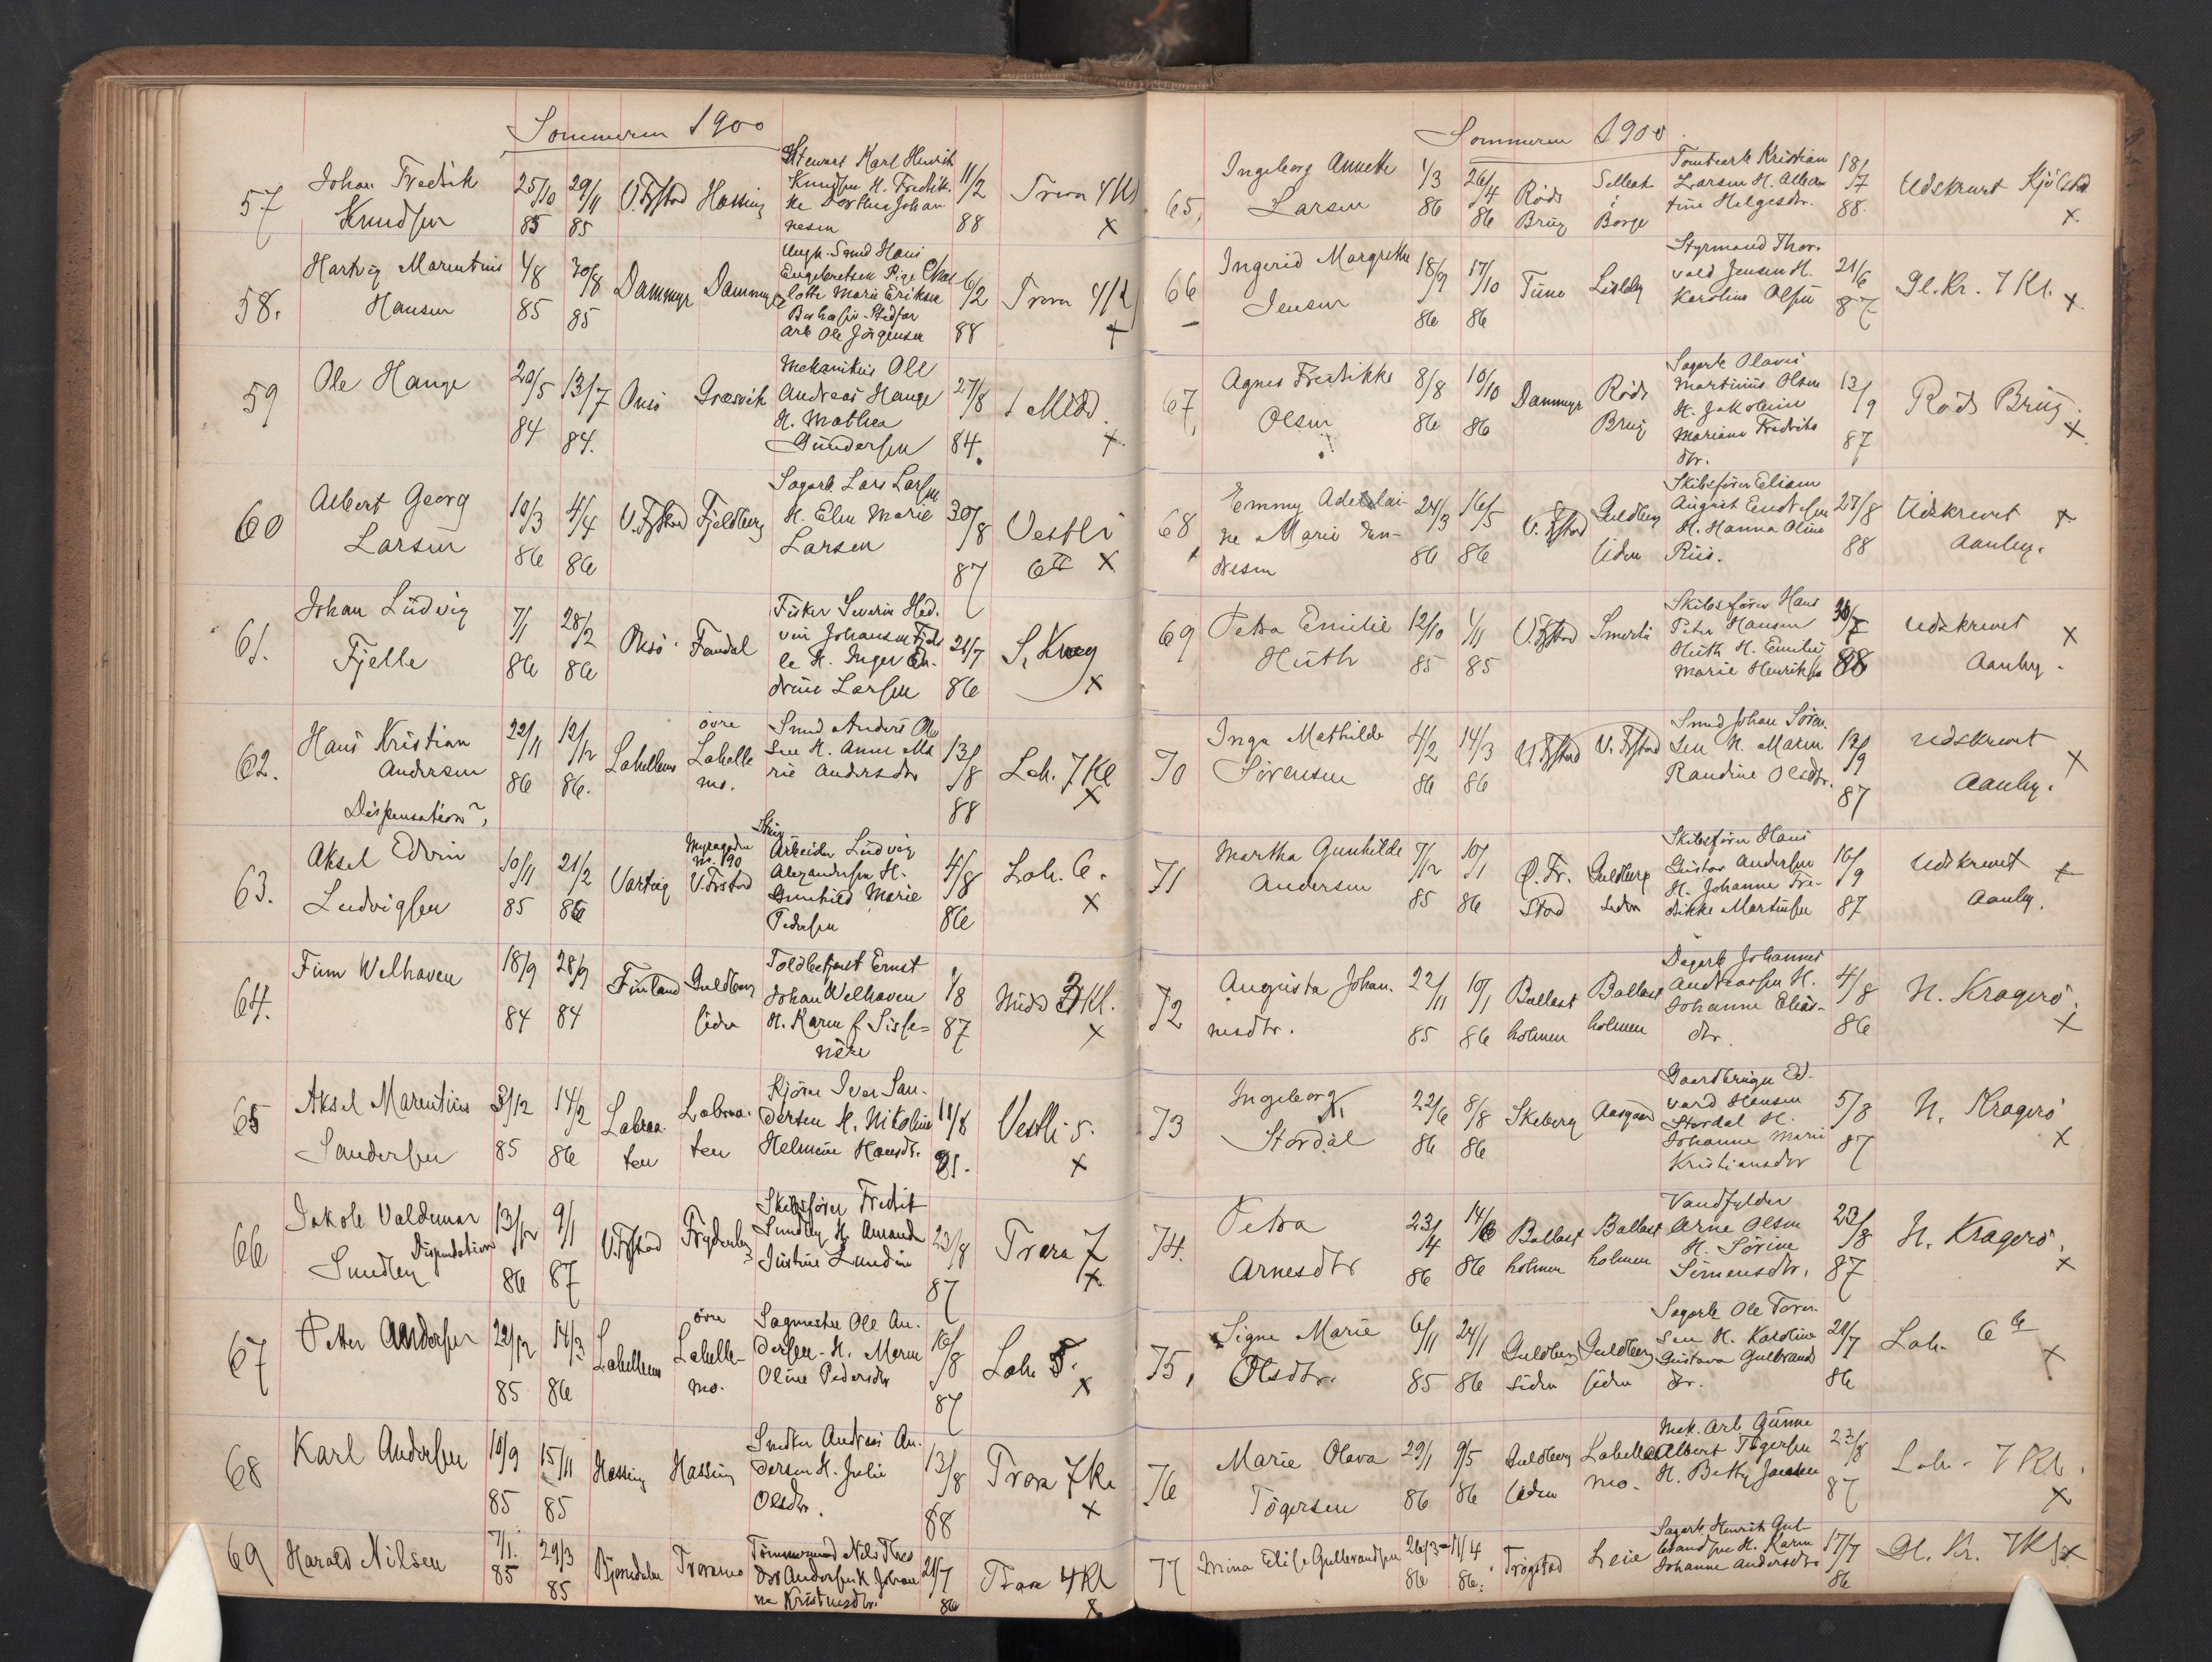 Sommeren 1900
57
Johan Fredrik
Knudsen
25/10
85
29/11
85
V. Fr.stad
Hassing
Stewart Karl Henrik
Knudsen H. Fredrik-
ke Dorthea Johan
nesen
11/2
88
Trara 4 Kl
X
58.
Hartvig Marentius
Hansen
4/8
85
30/8
85
Dammyr
Dammyr
Ungk. Smed Hans
Engebretsen Pige Char
lotte Marie Eriksen
Stedfar
Arb Ole Jörgensen
6/2
88
Trara 4/
X
59
Ole Hauge
20/5
84
13/7
84.
Onsö
Græsvik
Mekanikus Ole
Andreas Hauge
H. Mathea
Gundersen
27/8
84.
1 Midd.
X
60
Albert Georg
Larsen
10/3
86
4/4
86
V. Fr.stad
Fjeldberg
Sagarb. Lars Larsen
H. Elen Marie
Larsen
30/8
87
Vestli
6
X
61.
Johan Ludvig
Fjelle
7/1
86
28/2
86
Onsö
Faudal
Fisker Severin Hed.
vin Johansen Fjel
le H. Inger An-
drine Larsen
21/7
86
S. Krag
X
62.
Hans Kristian
Andersen
Dispensation?
22/11
86
12/12
86.
Lahellemo
övre
Lahelle
mo.
Smed Anders Ol
sen H. Anne Ma
rie Andersdtr
13/8
88
Lah. 7 Kl
X
63.
Aksel Edvin
Ludvigsen
10/11
85
21/2
86
Varteig
Myragaden
no. 190
V. Frstad
Arbeider Ludvig
Alexandersen H.
Gunhild Marie
Pedersen
4/8
86
Lah. 6.
X
64.
Finn Welhaven
18/9
84
28/9
84
Finland
Guldberg
siden
Toldbetjent Ernst
Johan Welhaven
H. Karen f. Sisse=
nère
1/8
87
Midd 3 Kl.
X
65
Aksel Marentius
Sandersen
3/12
85
14/2
86
Labraa-
ten
Labraa-
ten
Kjörer Iver San-
dersen H. Nikoline
Helmine Hansdtr.
11/8
Vestli 5.
X
66
Jakob Valdemar
Dispensation
Smedley
13/12
86
9/1
87
V. Frstad
Frydenberg
Skibsförer Fredrik
Smedley H. Amanda
Justine Lundin
23/8
87
Trara 7
X
67
Peter Andersen
22/12
85
14/3
86
Lahellemo
övre
Lahelle-
mo.
Sagmester Ole An-
dersen - H. Maren
Oline Pedersdtr
16/8
87
Lah 5.
X
68
Karl Andersen
10/9
85
15/11
85
Hassing
Hassing
Snedker Andreas An-
dersen H. Julie
Olsdtr.
13/8
88
Trara 7 Kl
X
69
Harald Nilsen
7/1.
85
29/3
85
Bjerndalen
Traramo
Tömmermand Nils Theo
dor Andersen H Johan
ne Kristinesdtr.
21/7
86
Trara 4 Kl
X
Sommeren 1900.
65,
Ingeborg Annette
Larsen
1/3
86
26/4
86
Röds
Brug
Sellebak
i
Borge
Tomtearb Kristian
Larsen H. Alber
tine Helgesdtr.
18/7
88.
Udskrevet Kjölstad
X.
66
Ingerid Margrethe
Jensen
18/9
86
17/10
86
Tune
Lisleby
Styrmand Thor-
vald Jensen H.
Karoline Olsen
21/6
87
Gl. Kr. 7 Kl.
X.
67,
Agnes Fredrikke
Olsen
8/8
86
10/10
86
Dammyr
Röds
Brug
Sagarb Olaves
Martinius Olsen
H. Jakobine
Mariane Fredriks
dtr.
13/9
87
Röds Brug.
X.
68
Emmy Adelai-
ne Marie Ean-
dresen
24/3
86
16/5
86
V. Frstad
Guldberg
siden
Skibsförer Eliam
August Eendresen
H. Hanna Oline
Riis.
27/8
88
Udskrevet
Aanby.
X
69
Petra Emilie
Huth
12/10
85
1/11
85
V. Frstad
Smertu
Skibsförer Hans
Peter Hansen
Huth H. Emilie
Marie Henriksen
30/7
88
Udskrevet
Aanby.
X
70
Inga Mathilde
Sörensen
4/2
86
14/3
86
V. Frstad
V. Frstad
Smed Johan Sören
sen H. Maren
Randine Olsdtr.
12/9
87
Udskrevet
Aanby.
X
71
Martha Gunhilde
Andersen
7/12
85
10/1
86
Ö. Fr.
stad
Guldberg
siden
Skibsförer Hans
Gustav Andersen
H. Johanne Fre-
drikke Martinsen
16/9
87
Udskrevet
Aanby.
X
72
Augusta Johan-
nesdtr.
22/11
85
10/1
86
Ballast
holmen
Ballast
holmen
Dagarb Johannes
Andreassen H.
Johanne Elias-
dtr.
4/8
86
N. Kragerö.
X
73
Ingeborg
Stordal
22/6
86
8/8
86
Skeberg
Aasgaard
Gaardbruger Ed-
vard Hansen
Stordal H.
Johanne Marie
Kristiansdtr
5/8
87
N. Kragerö
X
74.
Petra
Arnesdtr
23/4
86
14/6
86
Ballast
holmen
Ballast
holmen
Vandfylder
Arne Olsen
H. Sörine
Simensdtr.
23/8
87
N. Kragerö.
X
75,
Signe Marie
Olsdtr.
6/11
85
24/1
86
Guldberg
siden
Guldberg
siden
Sagarb Ole Tarer-
sen H. Karoline
Gustava Gulbrands
dtr.
21/7
86
Lah. 6
X
76
Marie Olava
Tögersen
29/1
86
9/5
86
Guldberg
siden
Lahelle
mo.
Mek. Arb Gunne
Albert Tögersen
H. Betty Jansen
23/8
87
Lah. 7 Kl.
X
77
Mina Elise Gulbrandsen
26/3
86
11/4
86.
Trögstad
Leie
Sagarb Henrik Gul-
brandsen H. Karen
Johanne Andersdtr
17/7
86
Gl. Kr. 7 Kl
X